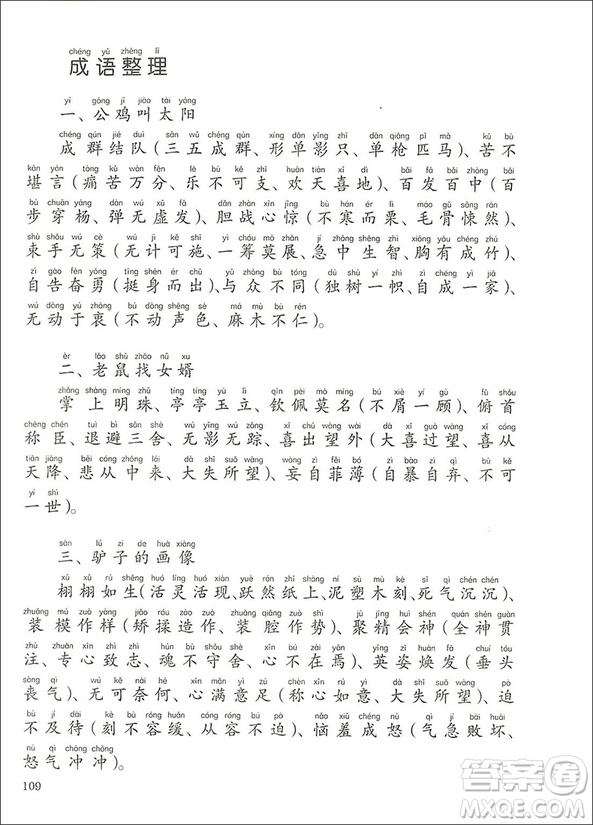 chéng yǔ zhěng lǐ
成语整理
yī gōng jī jiào tài yáng
一、公鸡叫太阳
chéng qún jié duì sān wǔ chéng qún xíng dān yǐng zhī dān qiāng pǐ mǎ kǔ bù
成群结队(三五成群、形单影只、单枪匹马)、苦不
kān yán tòng kǔ wàn fēn lè bù kě zhī huān tiān xǐ dì bǎi fā bǎi zhòng bǎi
堪言(痛苦万分、乐不可支、欢天喜地)、百发百中(百
bù chuān yáng dàn wú xū fā dǎn zhàn xīn jīng bù hán ér lì máo gǔ sǒng rán
步穿杨、弹无虚发)、胆战心惊(不寒而栗、毛骨悚然)、
shù shǒu wú cè wú jì kě shī yì chóu mò zhǎn jí zhōng shēng zhì xiōng yǒu chéng zhú
束手无策(无计可施、一筹莫展、急中生智、胸有成竹)、
zì gào fèn yǒng tǐng shēn ér chū yǔ zhòng bù tóng dú shù yí zhì zì chéng yì jiā
自告奋勇(挺身而出)、与众不同(独树一帜、自成一家)、
wú dòng yú zhōng bú dòng shēng sè má mù bù rén
无动于衷(不动声色、麻木不仁)。
èr lǎo shǔ zhǎo nǚ xu
二、老鼠找女婿
zhǎng shàng míng zhū tíng tíng yù lì qīn pèi mò míng bú xiè yí gù fǔ shǒu
掌上明珠、亭亭玉立、钦佩莫名(不屑一顾)、俯首
chēng chén tuì bì sān shè wú yǐng wú zōng xǐ chū wàng wài dà xǐ guò wàng xǐ cóng
称臣、退避三舍、无影无踪、喜出望外(大喜过望、喜从
tiān jiàng bēi cóng zhōng lái dà shī suǒ wàng wàng zì fěi bó zì bào zì qì bù kě
天降、悲从中来、大失所望)、妄自菲薄(自暴自弃、不可
yí shì
一世)。
sān lǘ zi de huà xiàng
三、驴子的画像
xǔ xǔ rú shēng huó líng huó xiàn yuè rán zhǐ shàng ní sù mù kè sǐ qì chén chén
栩栩如生(活灵活现、跃然纸上、泥塑木刻、死气沉沉)、
zhuāng mú zuò yàng jiǎo róu zào zuò zhuāng qiāng zuò shì jù jīng huì shén quán shén guàn
装模作样(矫揉造作、装腔作势)、聚精会神(全神贯
zhù zhuān xīn zhì zhì hún bù shǒu shè xīn bú zài yān yīng zī huàn fā chuí tóu
注、专心致志、魂不守舍、心不在焉)、英姿焕发(垂头
sàng qì wú kě nài hé xīn mǎn yì zú chèn xīn rú yì dà shī suǒ wàng pò
丧气)、无可奈何、心满意足(称心如意、大失所望)、迫
bù jí dài kè bù róng huǎn cóng róng bú pò nǎo xiū chéng nù qì jí bài huài
不及待(刻不容缓、从容不迫)、恼羞成怒(气急败坏、
nù qì chōng chōng
怒气冲冲)。
109
答案圈
MXQE.COM